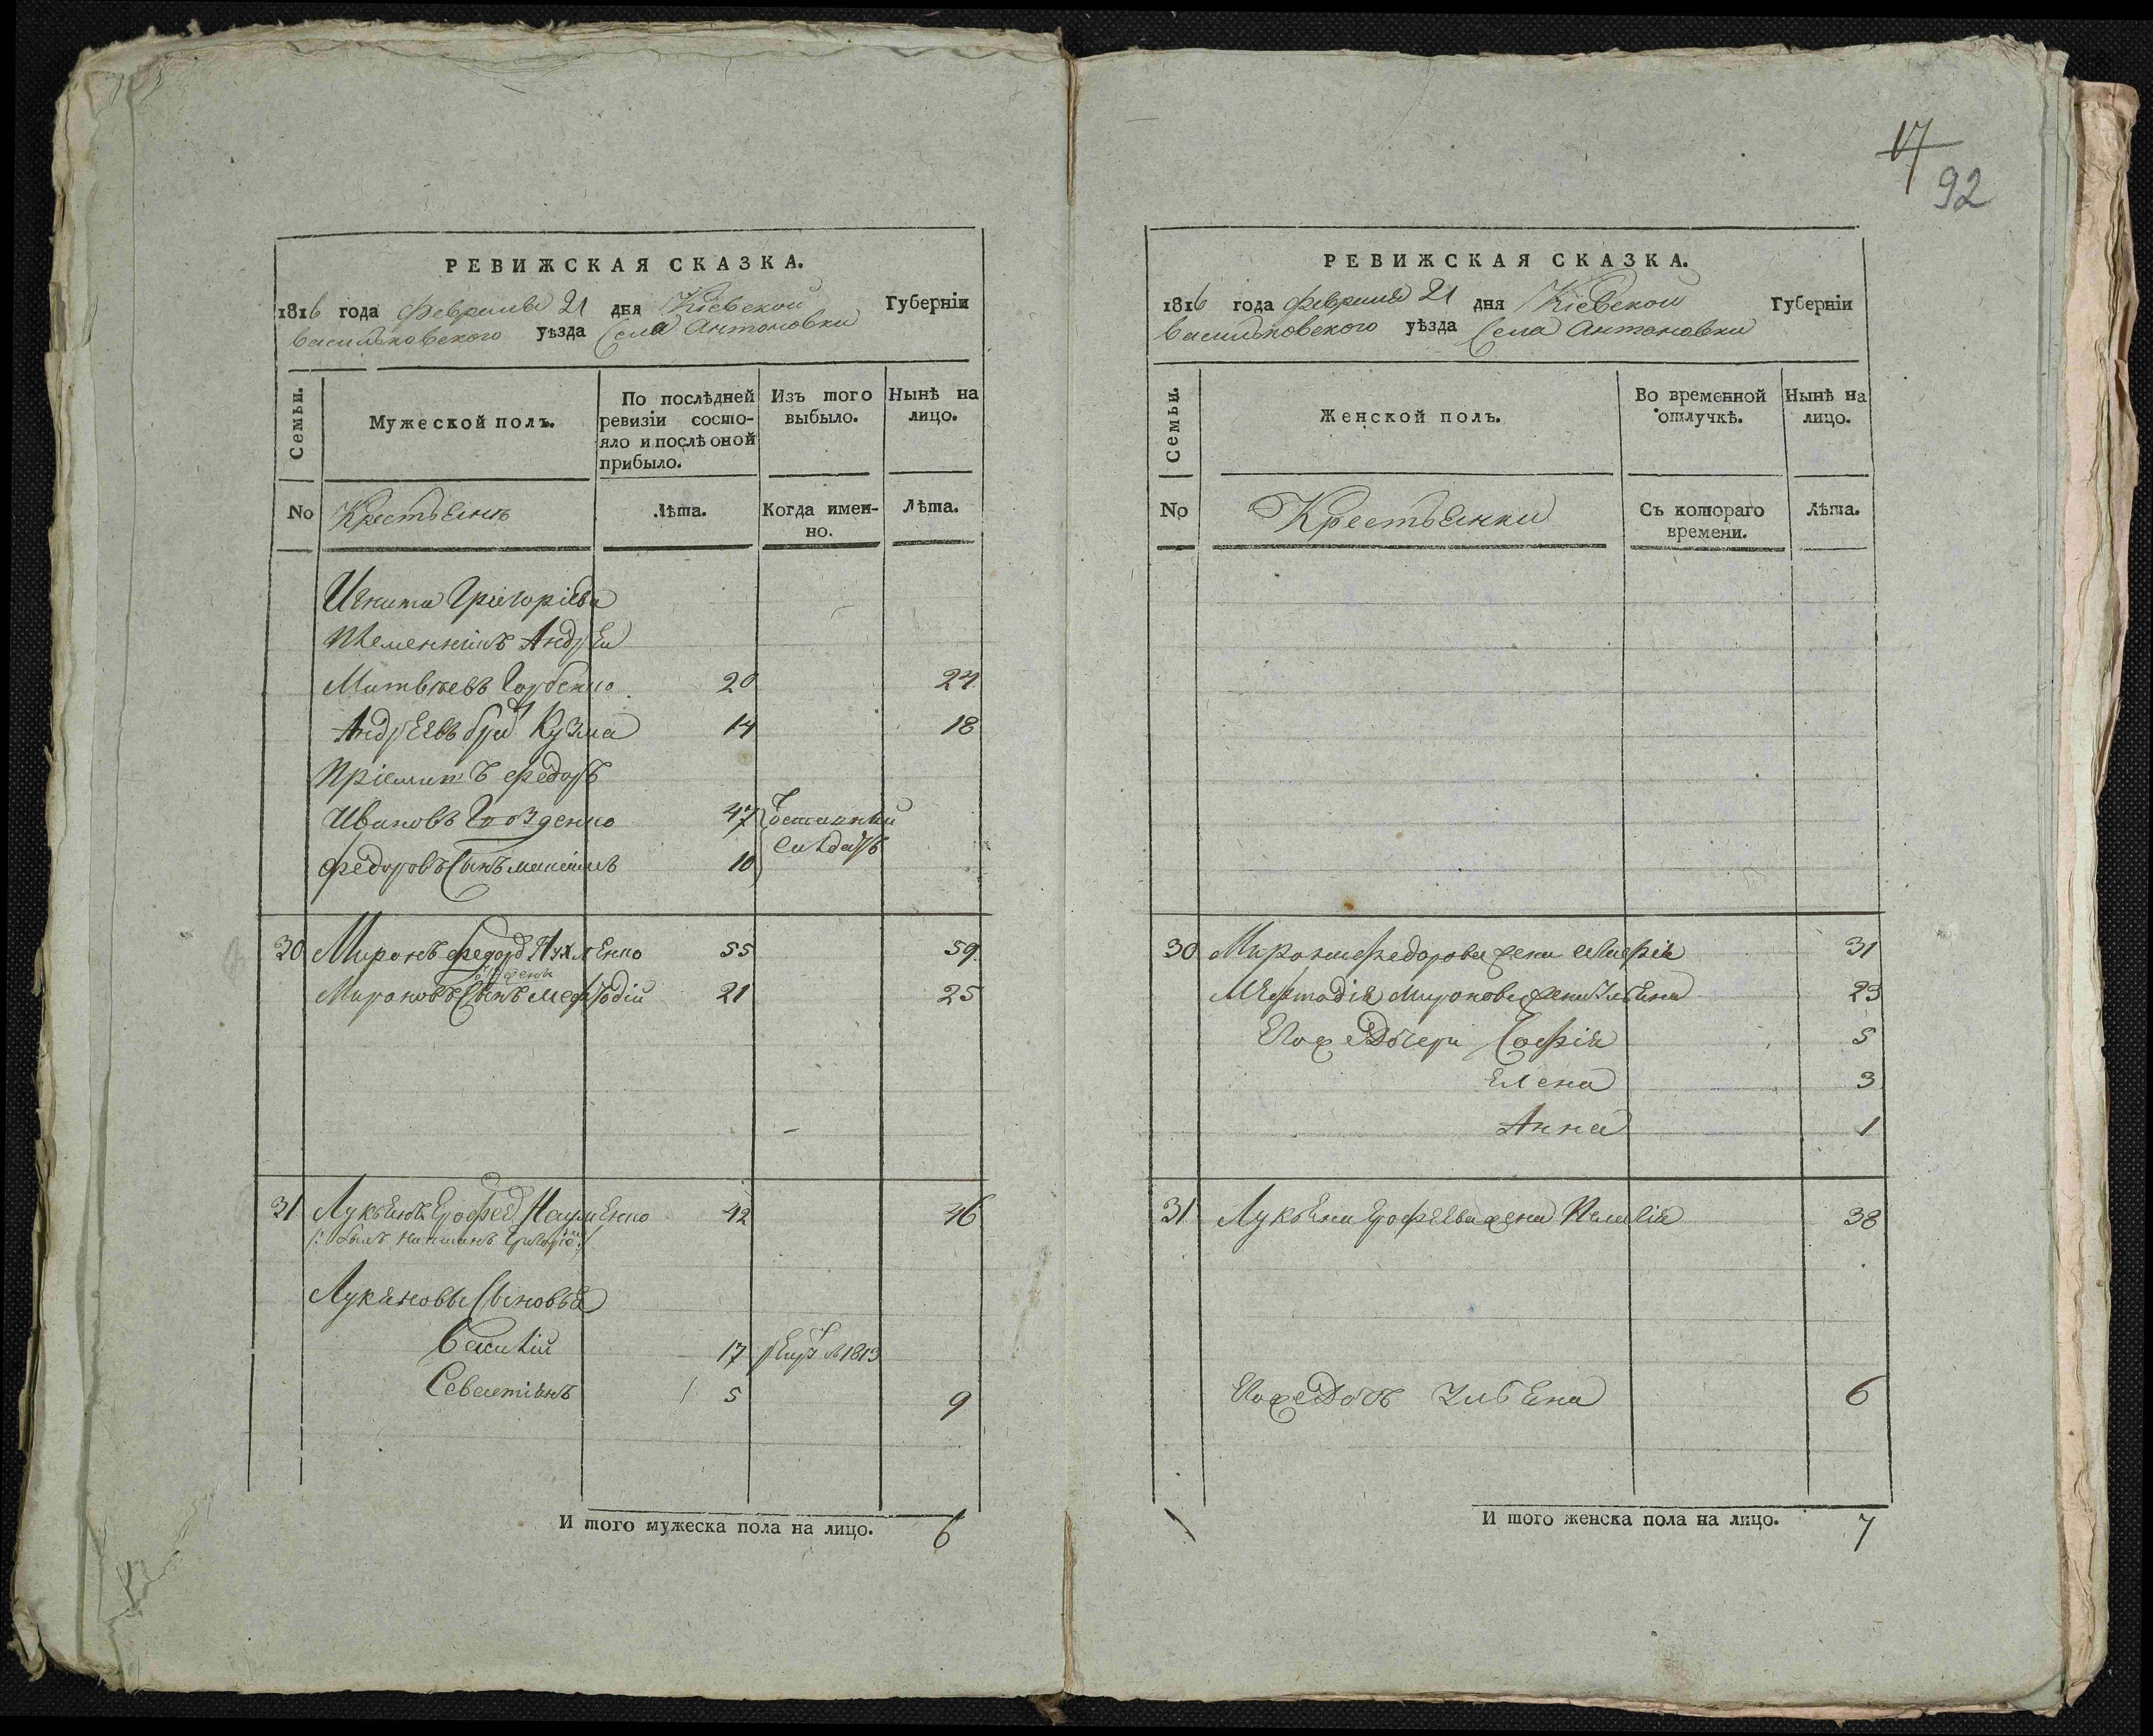 РЕВИЖСКАЯ СКАЗКА.
1816 года февраля 21 дня Кіевской Губерніи
Васильковского уѣзда Села Антоновки
Семьи.
Мужеской полъ.
По послѣдней ревизіи состо-
яло и послѣ оной
прибыло.
Изъ того
выбыло.
Нынѣ на
лицо.
No Крестьянъ
Лѣта.
Когда имен-
но.
Лѣта.
Игната Григоріева
племенникъ Андрей
Матвѣевъ Горбенко 20 24
Андреевъ братъ Кузма 14 18
Пріемышъ Федоръ
Ивановъ Гвозденко 47
Федоровъ Сынъ 10
30 Миронъ Федоров 55 59
Мироновъ Сынъ Мефтодій 21 25
31 Лукьянъ Ерофеев Науменко 42 46
Лукяновы Сыновья
Василій 17 1813
Севастіянъ 5 9
И того мужеска пола на лицо. 6
17
92
РЕВИЖСКАЯ СКАЗКА.
1816 года февраля 21 дня Кіевской Губерніи
Васильковского уѣзда Села Антоновки
Семьи.
Женской полъ.
Во временной
отлучкѣ.
Нынѣ на
лицо.
No Крестьянки
Съ котораго
времени.
Лѣта.
30 Мирона Федорова жена Марфія 31
Мефтодія Миронова жена Ульяна 23
Его же Дочери Софія 5
Елена 3
Анна 1
31 Лукьяна Ерофеева жена Пелагія 38
Его же Дочь Ульяна 6
И того женска пола на лицо. 7